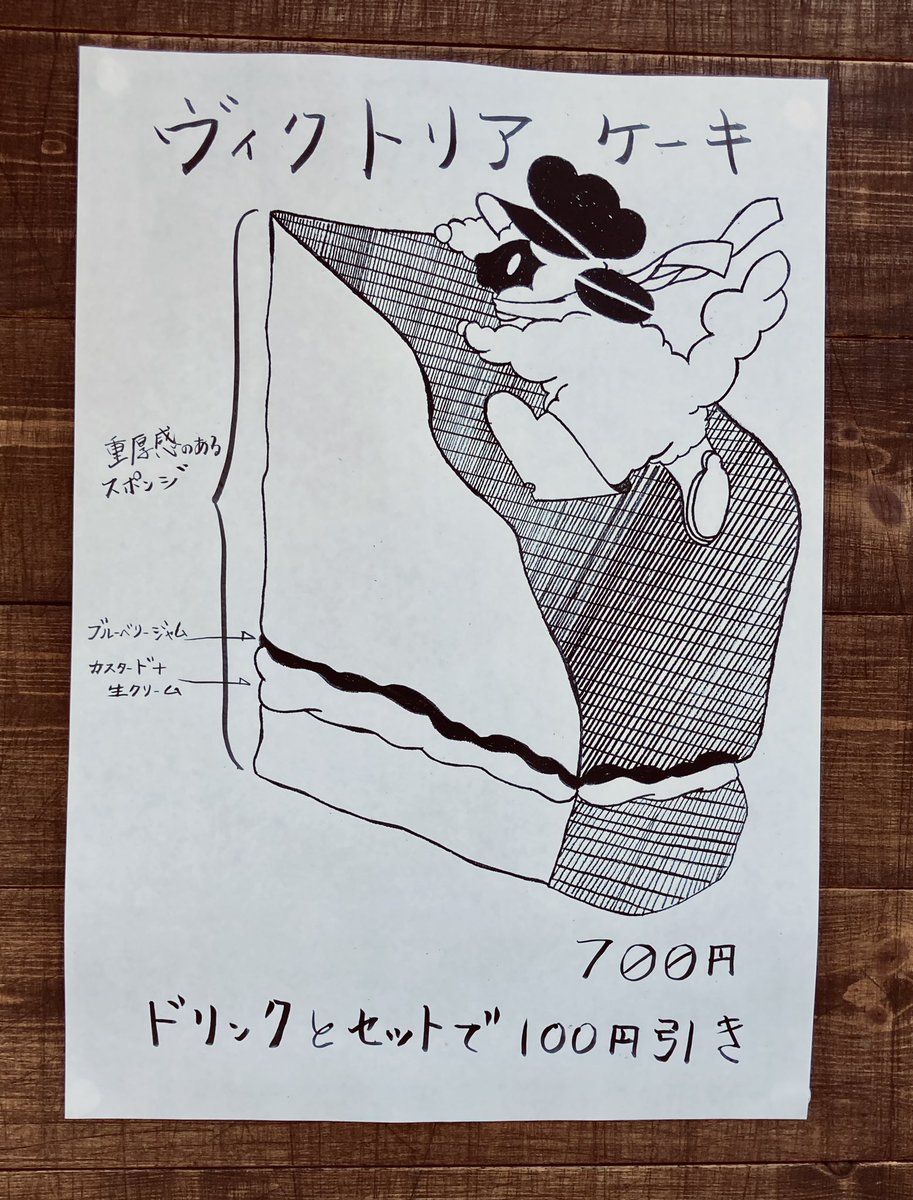 ヴィクトリア ケーキ
重厚感のある
スポンジ
ブルーベリージャム
カスタード+
生クリーム
700円
ドリンクとセットで100円引き